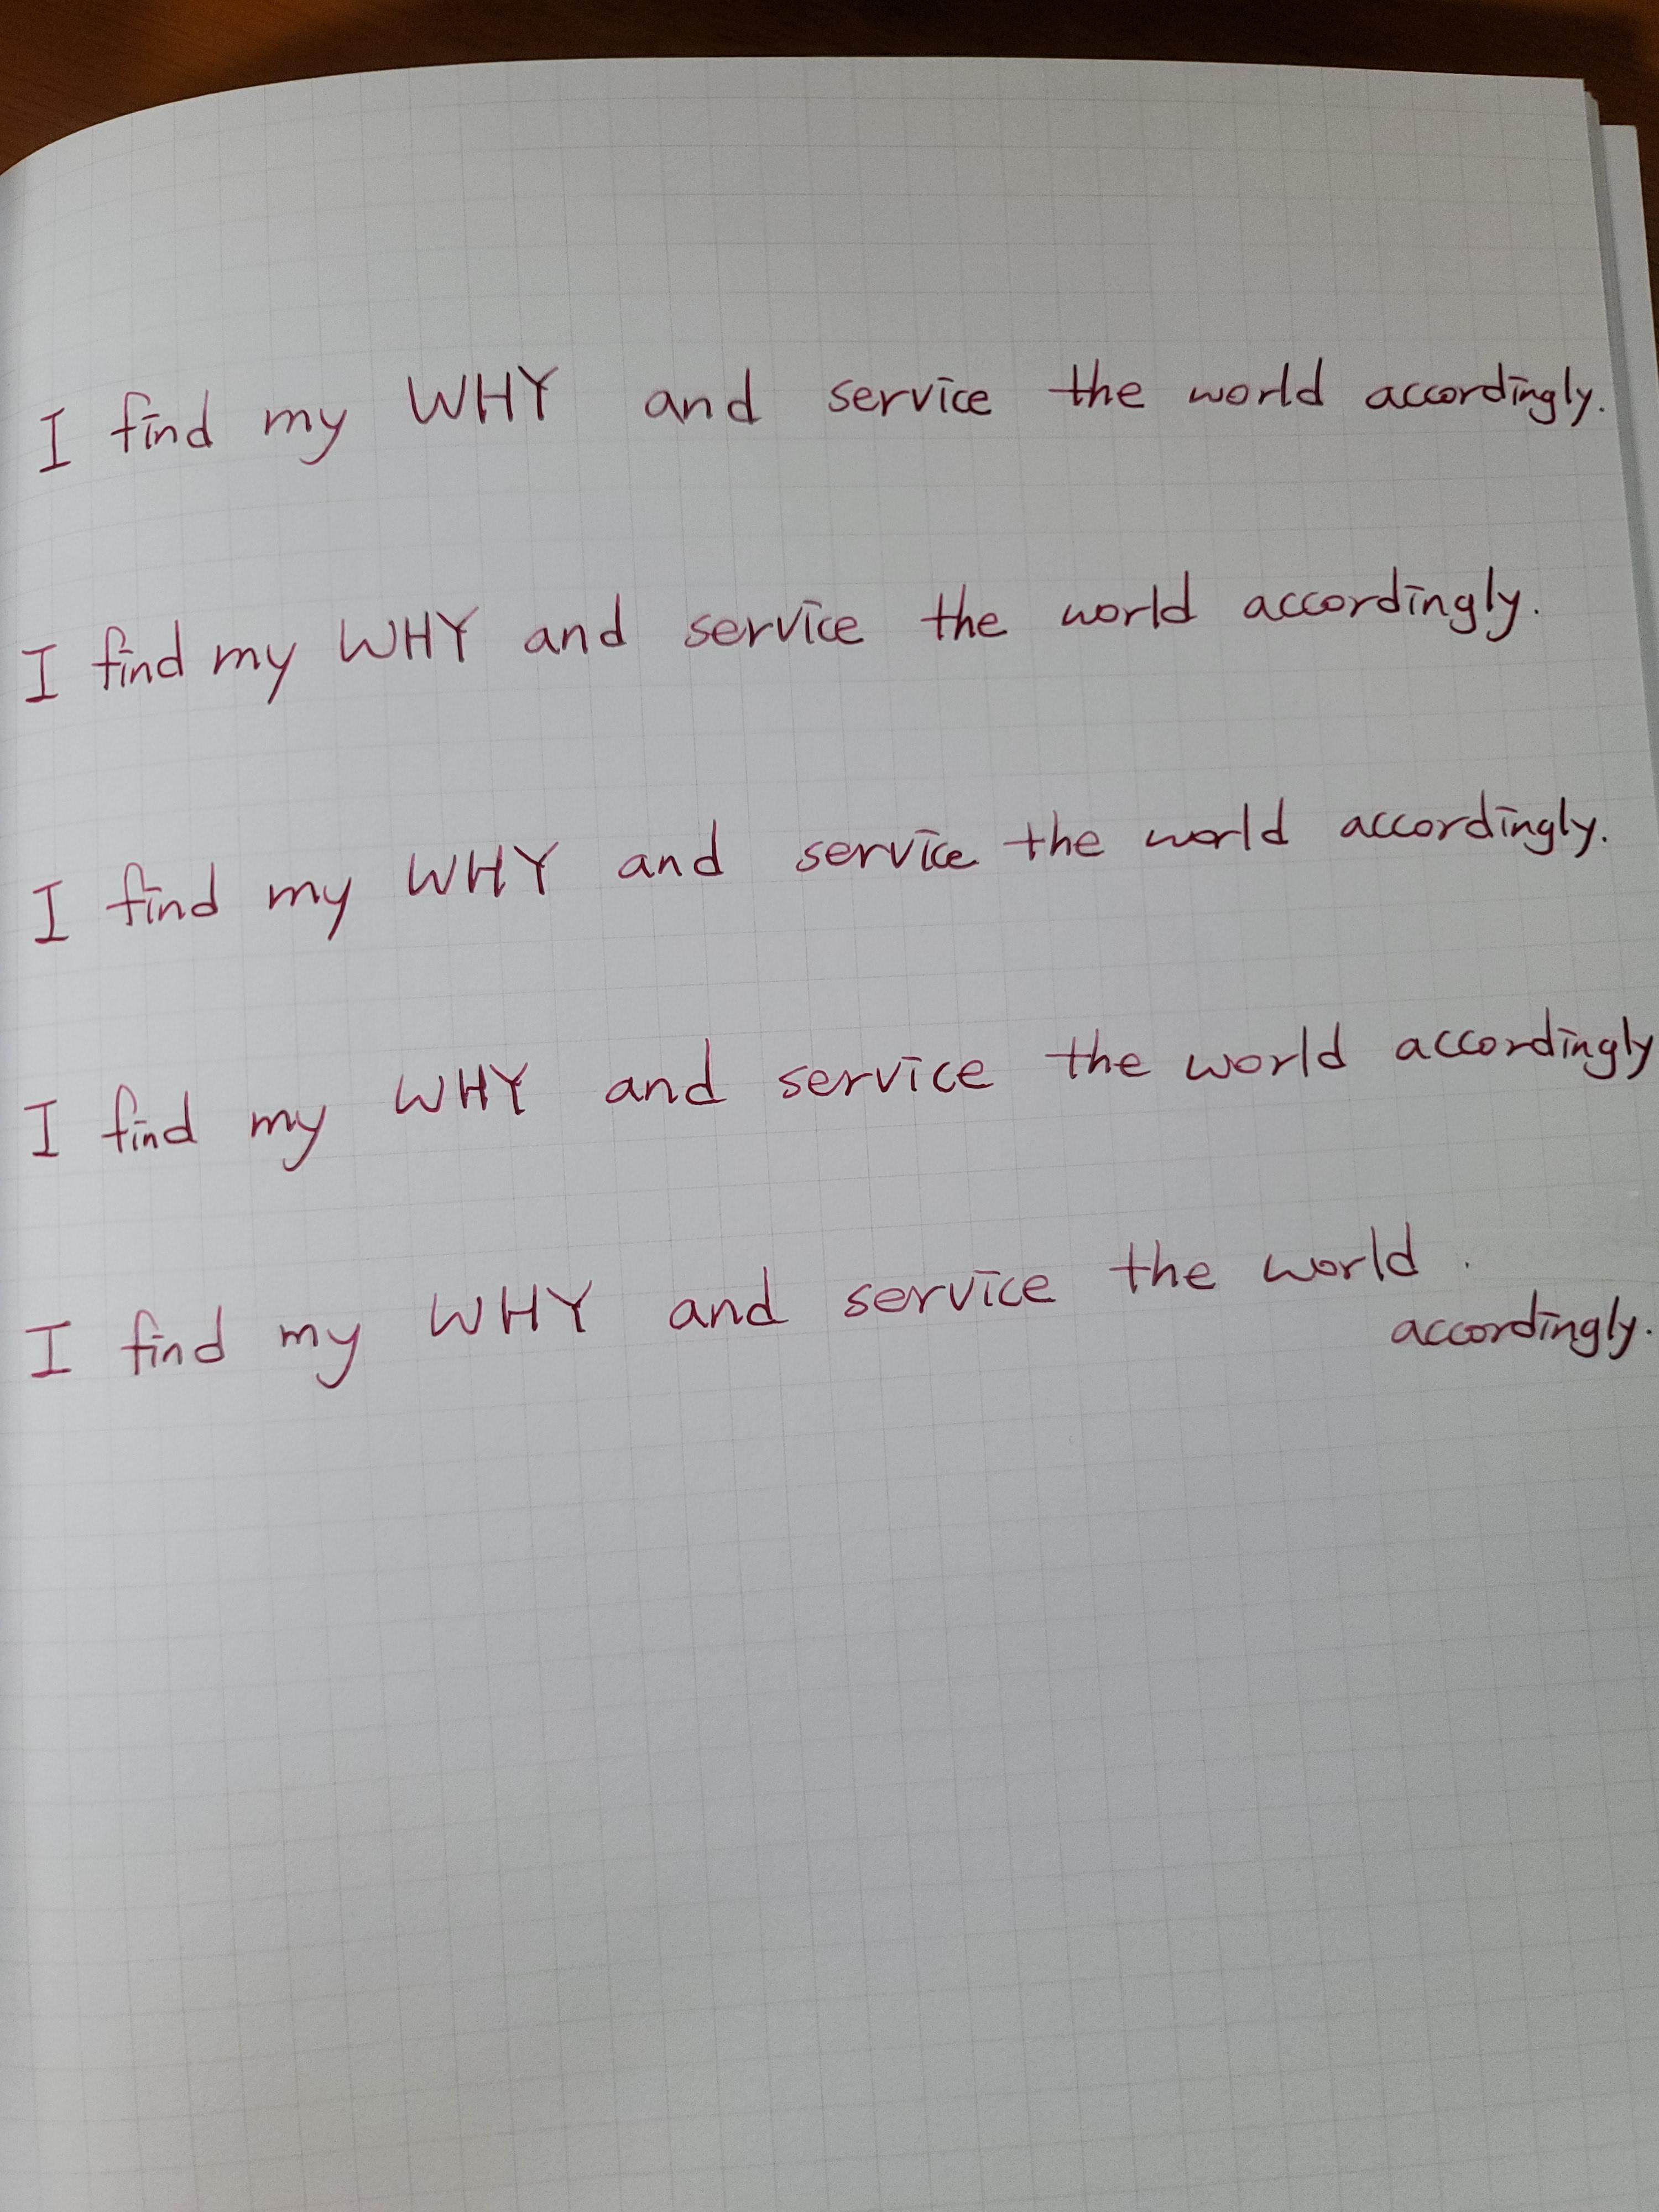 I find my WHY and service the world accordingly.
I find my WHY and service the world accordingly.
I find my WHY and service the world accordingly.
I find my WHY and service the world accordingly
I find my WHY and service the world .
accordingly.